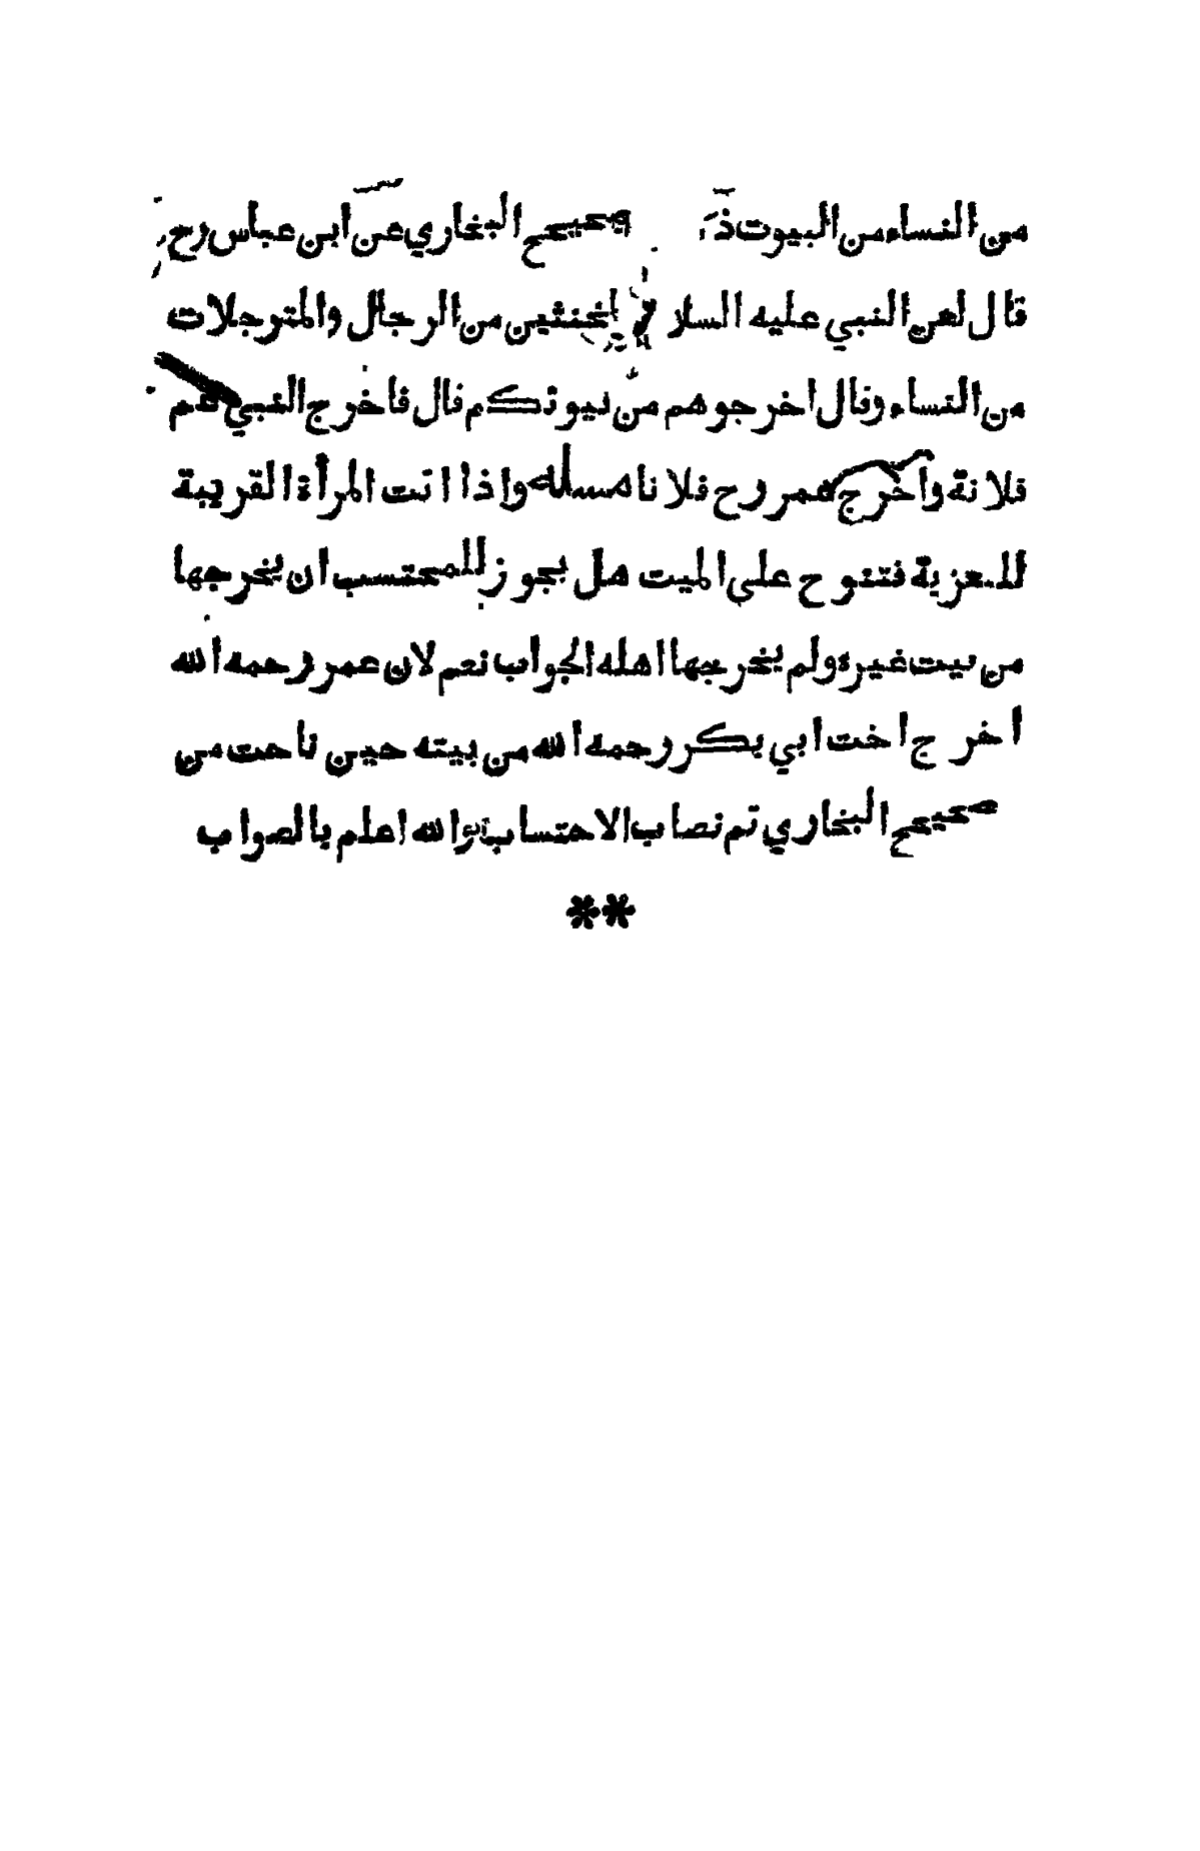 من النساء من البيوت ذ صحيح البخاري عن ابن عباس رح
قال لعن النبي عليه السلا المخنثين من الرجال والمترجلات
من النساء وقال اخرجوهم من بيوتكم قال فاخرج النبي
فلانة واخرج عمر رح فلانا مسئله واذا اتت المرأة القريبة
للتعزية فتنوح على الميت هل يجوز للمحتسب ان يخرجها
من بيت غيره ولم يخرجها اهله الجواب نعم لان عمر رحمه الله
اخرج اخت ابي بكر رحمه الله من بيته حين ناحت من
صحيح البخاري تم نصاب الاحتساب والله اعلم بالصواب
**